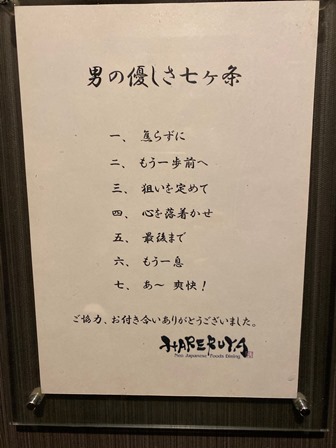 男の優しさ七ヶ条
一、焦らずに
二、もう一歩前へ
三、狙いを定めて
四、心を落着かせ
五、最後まで
六、もう一息
七、あ～爽快！
ご協力、お付き合いありがとうございました。
HARERUYA
Pan Japanese Foods Dining